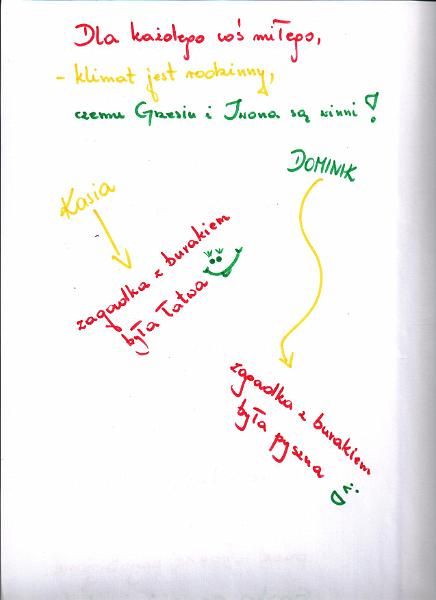 Dla każdego coś miłego,
- klimat jest rodzinny,
czemu Grzesiu i Iwona są winni!
Kasia
zagadka z burakiem
była łatwa
DOMINIK
zgadka z burakiem
była pyszna